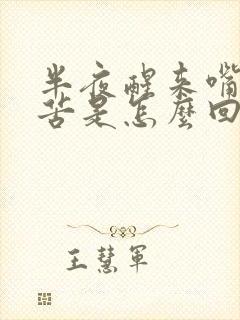 半夜醒来嘴
苦是怎麼回
王慧軍